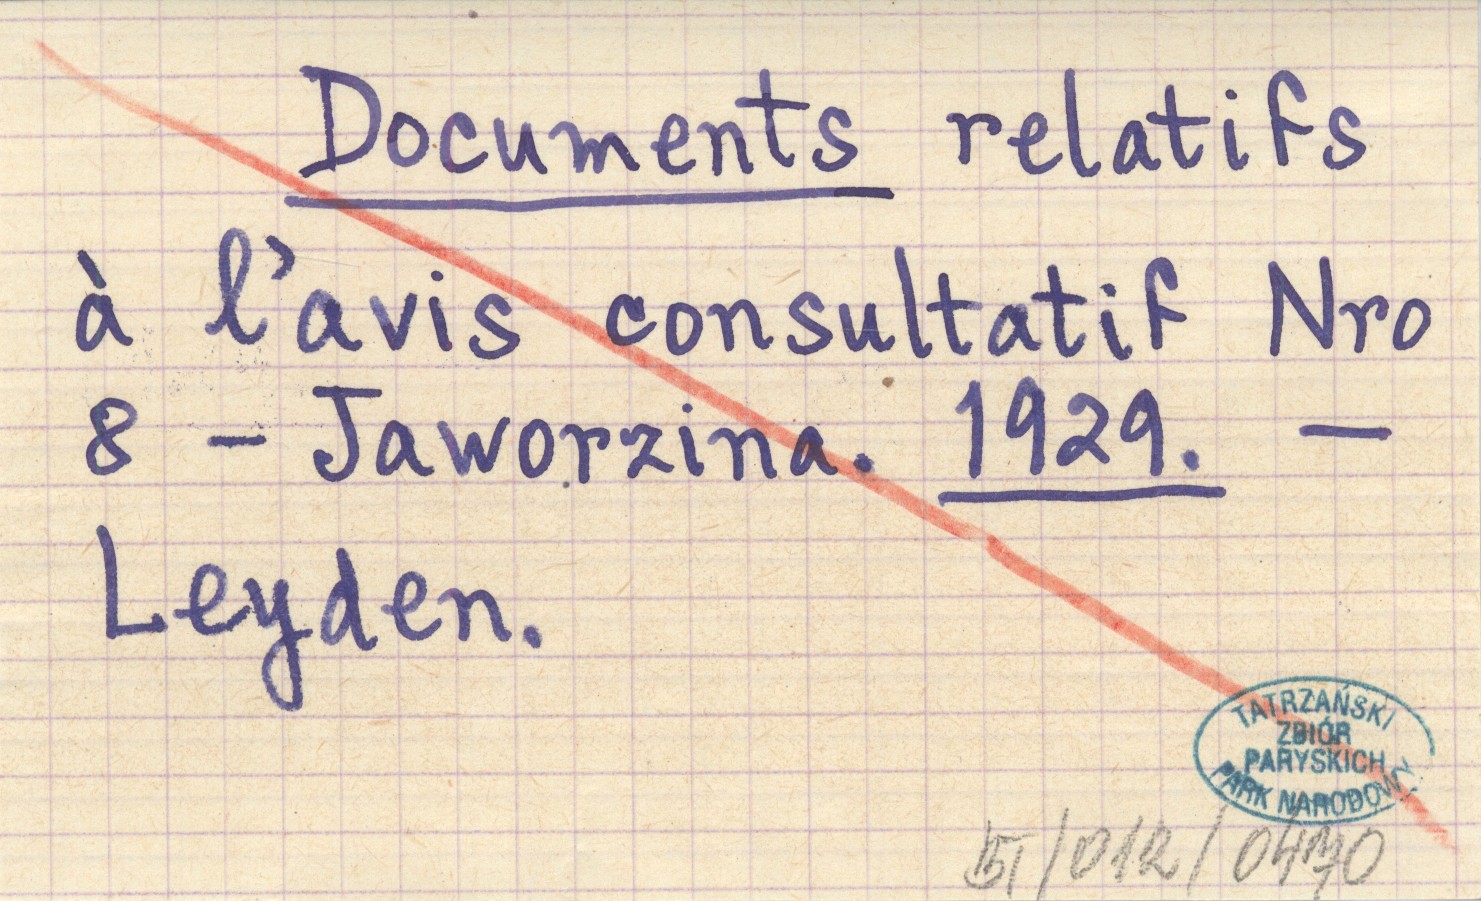 Documents relatifs
à l'avis consultatif Nro
8 – Jaworzina. 1929. –
Leyden.
TATRZAŃSKI
ZBIÓR
PARYSKICH
PARK NARODOWY
/012/0470